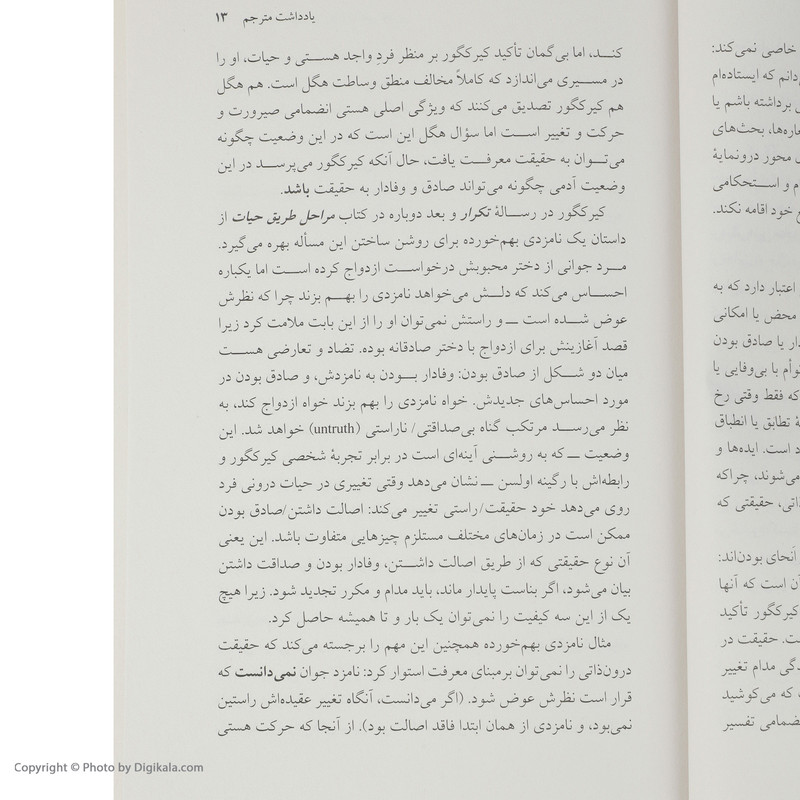 یادداشت مترجم ۱۳
کنند، اما بی‌گمان تأکید کیرکگور بر منظر فردِ واجد هستی و حیات، او را
در مسیری می‌اندازد که کاملاً مخالف منطق وساطت هگل است. هم هگل
هم کیرکگور تصدیق می‌کنند که ویژگی اصلی هستی انضمامی صیرورت و
حرکت و تغییر است اما سؤال هگل این است که در این وضعیت چگونه
می‌توان به حقیقت معرفت یافت، حال آنکه کیرکگور می‌پرسد در این
وضعیت آدمی چگونه می‌تواند صادق و وفادار به حقیقت باشد.
کیرکگور در رسالهٔ تکرار و بعد دوباره در کتاب مراحل طریق حیات از
داستان یک نامزدی بهم‌خورده برای روشن ساختن این مسأله بهره می‌گیرد.
مرد جوانی از دختر محبوبش درخواست ازدواج کرده است اما یکباره
احساس می‌کند که دلش می‌خواهد نامزدی را بهم بزند چرا که نظرش
عوض شده است ــ و راستش نمی‌توان او را از این بابت ملامت کرد زیرا
قصد آغازینش برای ازدواج با دختر صادقانه بوده. تضاد و تعارضی هست
میان دو شکل از صادق بودن: وفادار بودن به نامزدش، و صادق بودن در
مورد احساس‌های جدیدش. خواه نامزدی را بهم بزند خواه ازدواج کند، به
نظر می‌رسد مرتکب گناه بی‌صداقتی/ ناراستی (untruth) خواهد شد. این
وضعیت ــ که به روشنی آینه‌ای است در برابر تجربهٔ شخصی کیرکگور و
رابطه‌اش با رگینه اولسن ــ نشان می‌دهد وقتی تغییری در حیات درونی فرد
روی می‌دهد خود حقیقت/راستی تغییر می‌کند: اصالت داشتن/صادق بودن
ممکن است در زمان‌های مختلف مستلزم چیزهایی متفاوت باشد. این یعنی
آن نوع حقیقتی که از طریق اصالت داشتن، وفادار بودن و صداقت داشتن
بیان می‌شود، اگر بناست پایدار ماند، باید مدام و مکرر تجدید شود. زیرا هیچ
یک از این سه کیفیت را نمی‌توان یک بار و تا همیشه حاصل کرد.
مثال نامزدی بهم‌خورده همچنین این مهم را برجسته می‌کند که حقیقت
درون‌ذاتی را نمی‌توان برمبنای معرفت استوار کرد: نامزد جوان نمی‌دانست که
قرار است نظرش عوض شود. (اگر می‌دانست، آنگاه تغییر عقیده‌اش راستین
نمی‌بود، و نامزدی از همان ابتدا فاقد اصالت بود). از آنجا که حرکت هستی
خاصی نمی‌کند:
دانم که ایستاده‌ام
برداشته باشم یا
عاره‌ها، بحث‌های
محور درونمایهٔ
م و استحکامی
خود اقامه نکند.
اعتبار دارد که به
محض یا امکانی
دار یا صادق بودن
توأم با بی‌وفایی یا
که فقط وقتی رخ
تطابق یا انطباق
د است. ایده‌ها و
می‌شوند، چراکه
ذاتی، حقیقتی که
أنحای بودن‌اند:
آن است که آنها
کیرکگور تأکید
ت. حقیقت در
دگی مدام تغییر
که می‌کوشید
ضمامی تفسیر
Copyright © Photo by Digikala.com